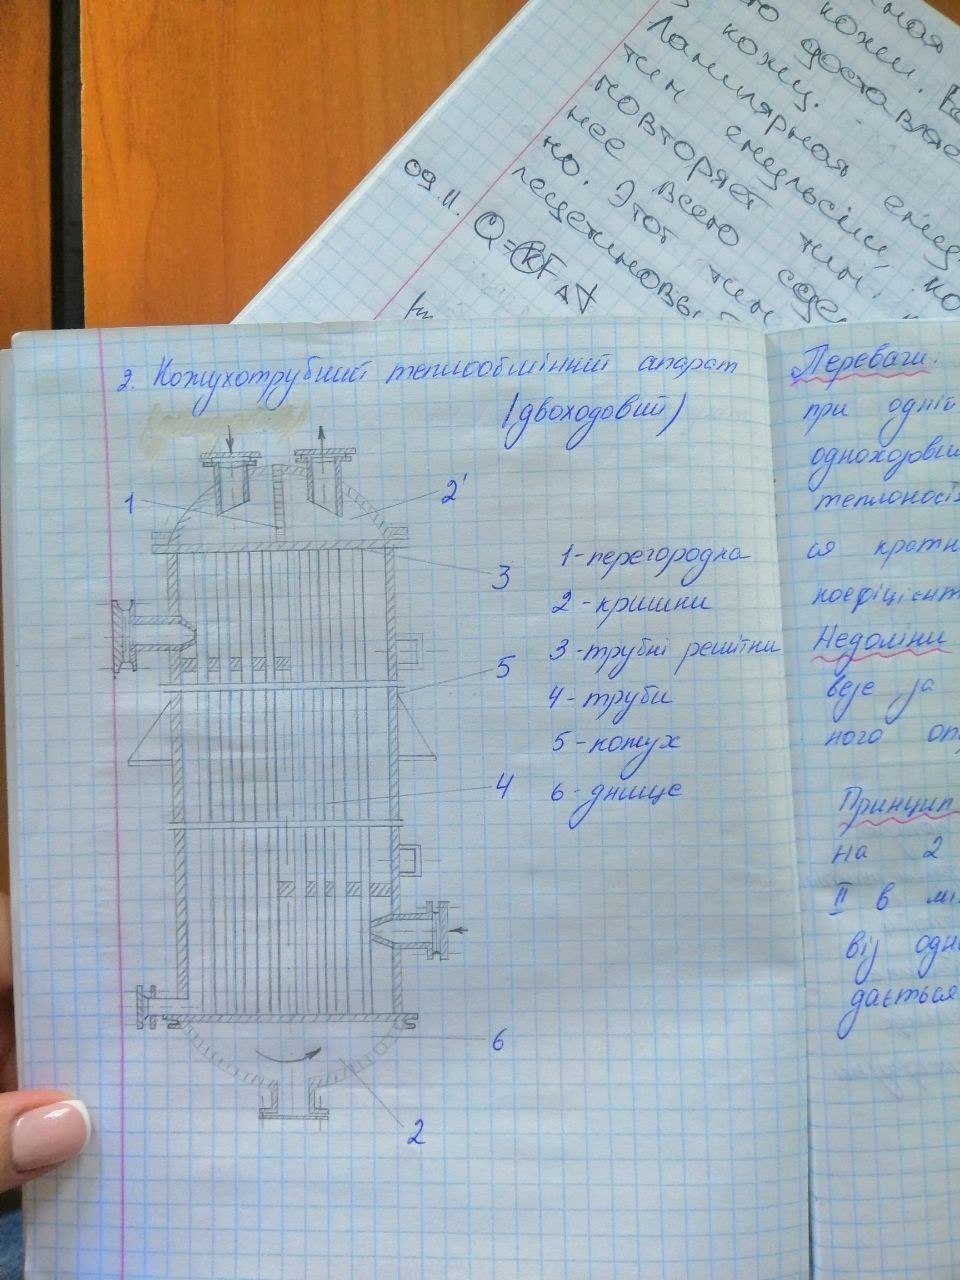 кожи. Ве
кожу. доставляе
Ламилярная
тин емульсіи
повторяет
нее всего тин
но. Этот тин
09.11.
Q=KF
2. Кожухотрубний теплообмінний апарат
(двоходовий)
1
2'
3
5
4
6
2
1-перегородка
2-кришки
3-трубні решітки
4-труби
5-кожух
6-днище
Переваги:
при одній
теплоносі
ся кратн
коефіцієнт
Недоліки
ного оп
Принцип
на 2
II в мі
від одн
дається